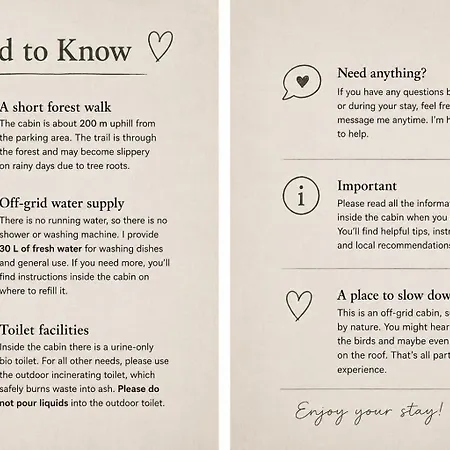 d to Know
A short forest walk
The cabin is about 200 m uphill from
the parking area. The trail is through
the forest and may become slippery
on rainy days due to tree roots.
Off-grid water supply
There is no running water, so there is no
shower or washing machine. I provide
30 L of fresh water for washing dishes
and general use. If you need more, you'll
find instructions inside the cabin on
where to refill it.
Toilet facilities
Inside the cabin there is a urine-only
bio toilet. For all other needs, please use
the outdoor incinerating toilet, which
safely burns waste into ash. Please do
not pour liquids into the outdoor toilet.
Need anything?
If you have any questions b
or during your stay, feel fre
message me anytime. I'm h
to help.
i
Important
Please read all the informa
inside the cabin when you
You'll find helpful tips, inst
and local recommendations
A place to slow dow
This is an off-grid cabin, s
by nature. You might hear
the birds and maybe even
on the roof. That's all part
experience.
Enjoy your stay!